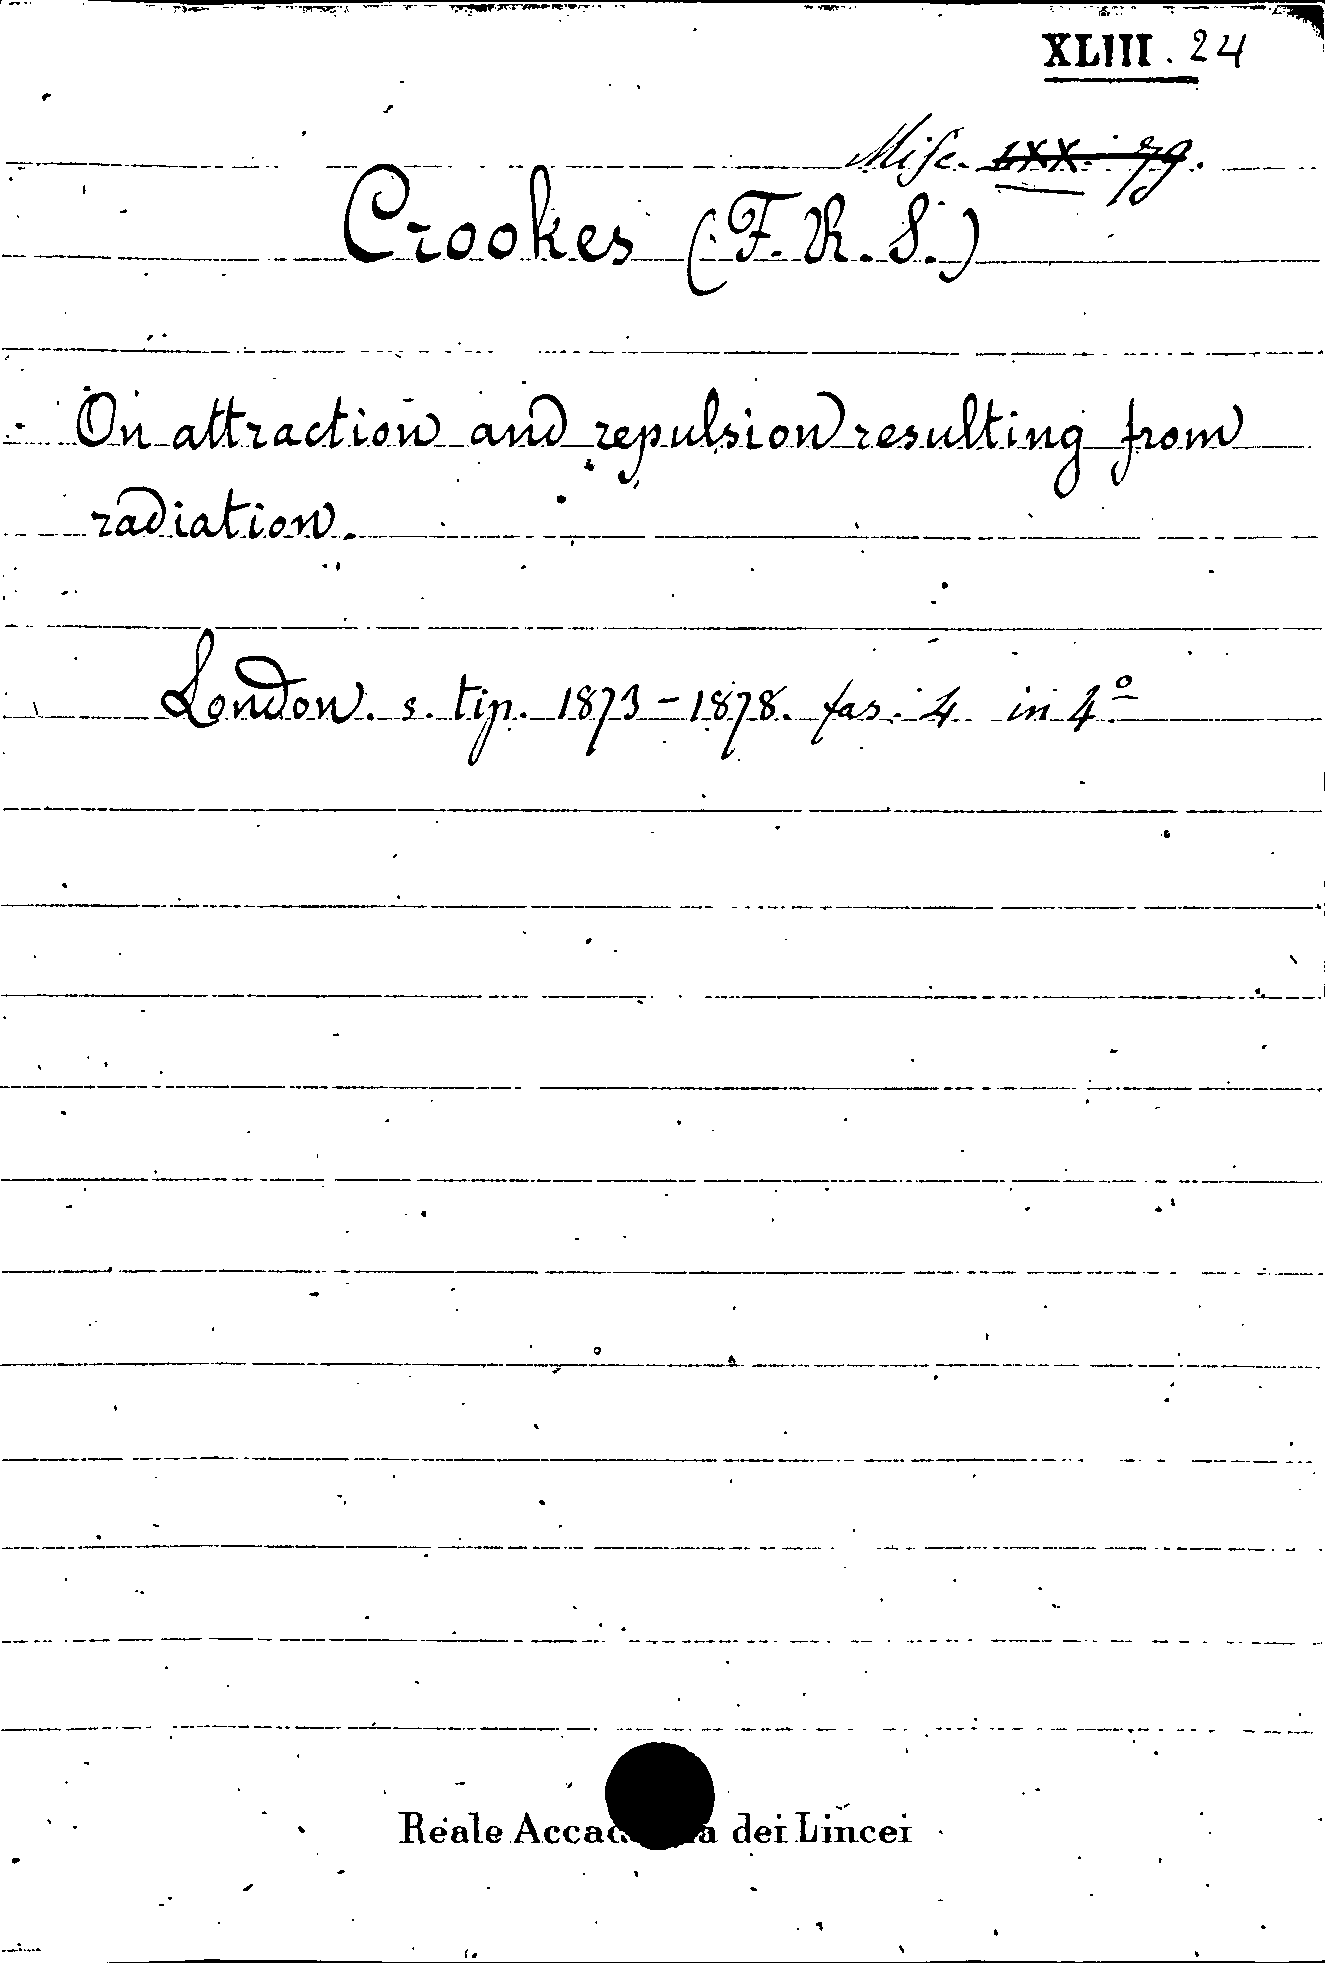 XLIII. 24
Misc. LXX. 79.
Crookes (F. R. S.)
On attraction and repulsion resulting from
radiation.
London. s. tip. 1873-1878. fas. 4 in 4º
Reale Accad a dei Lincei